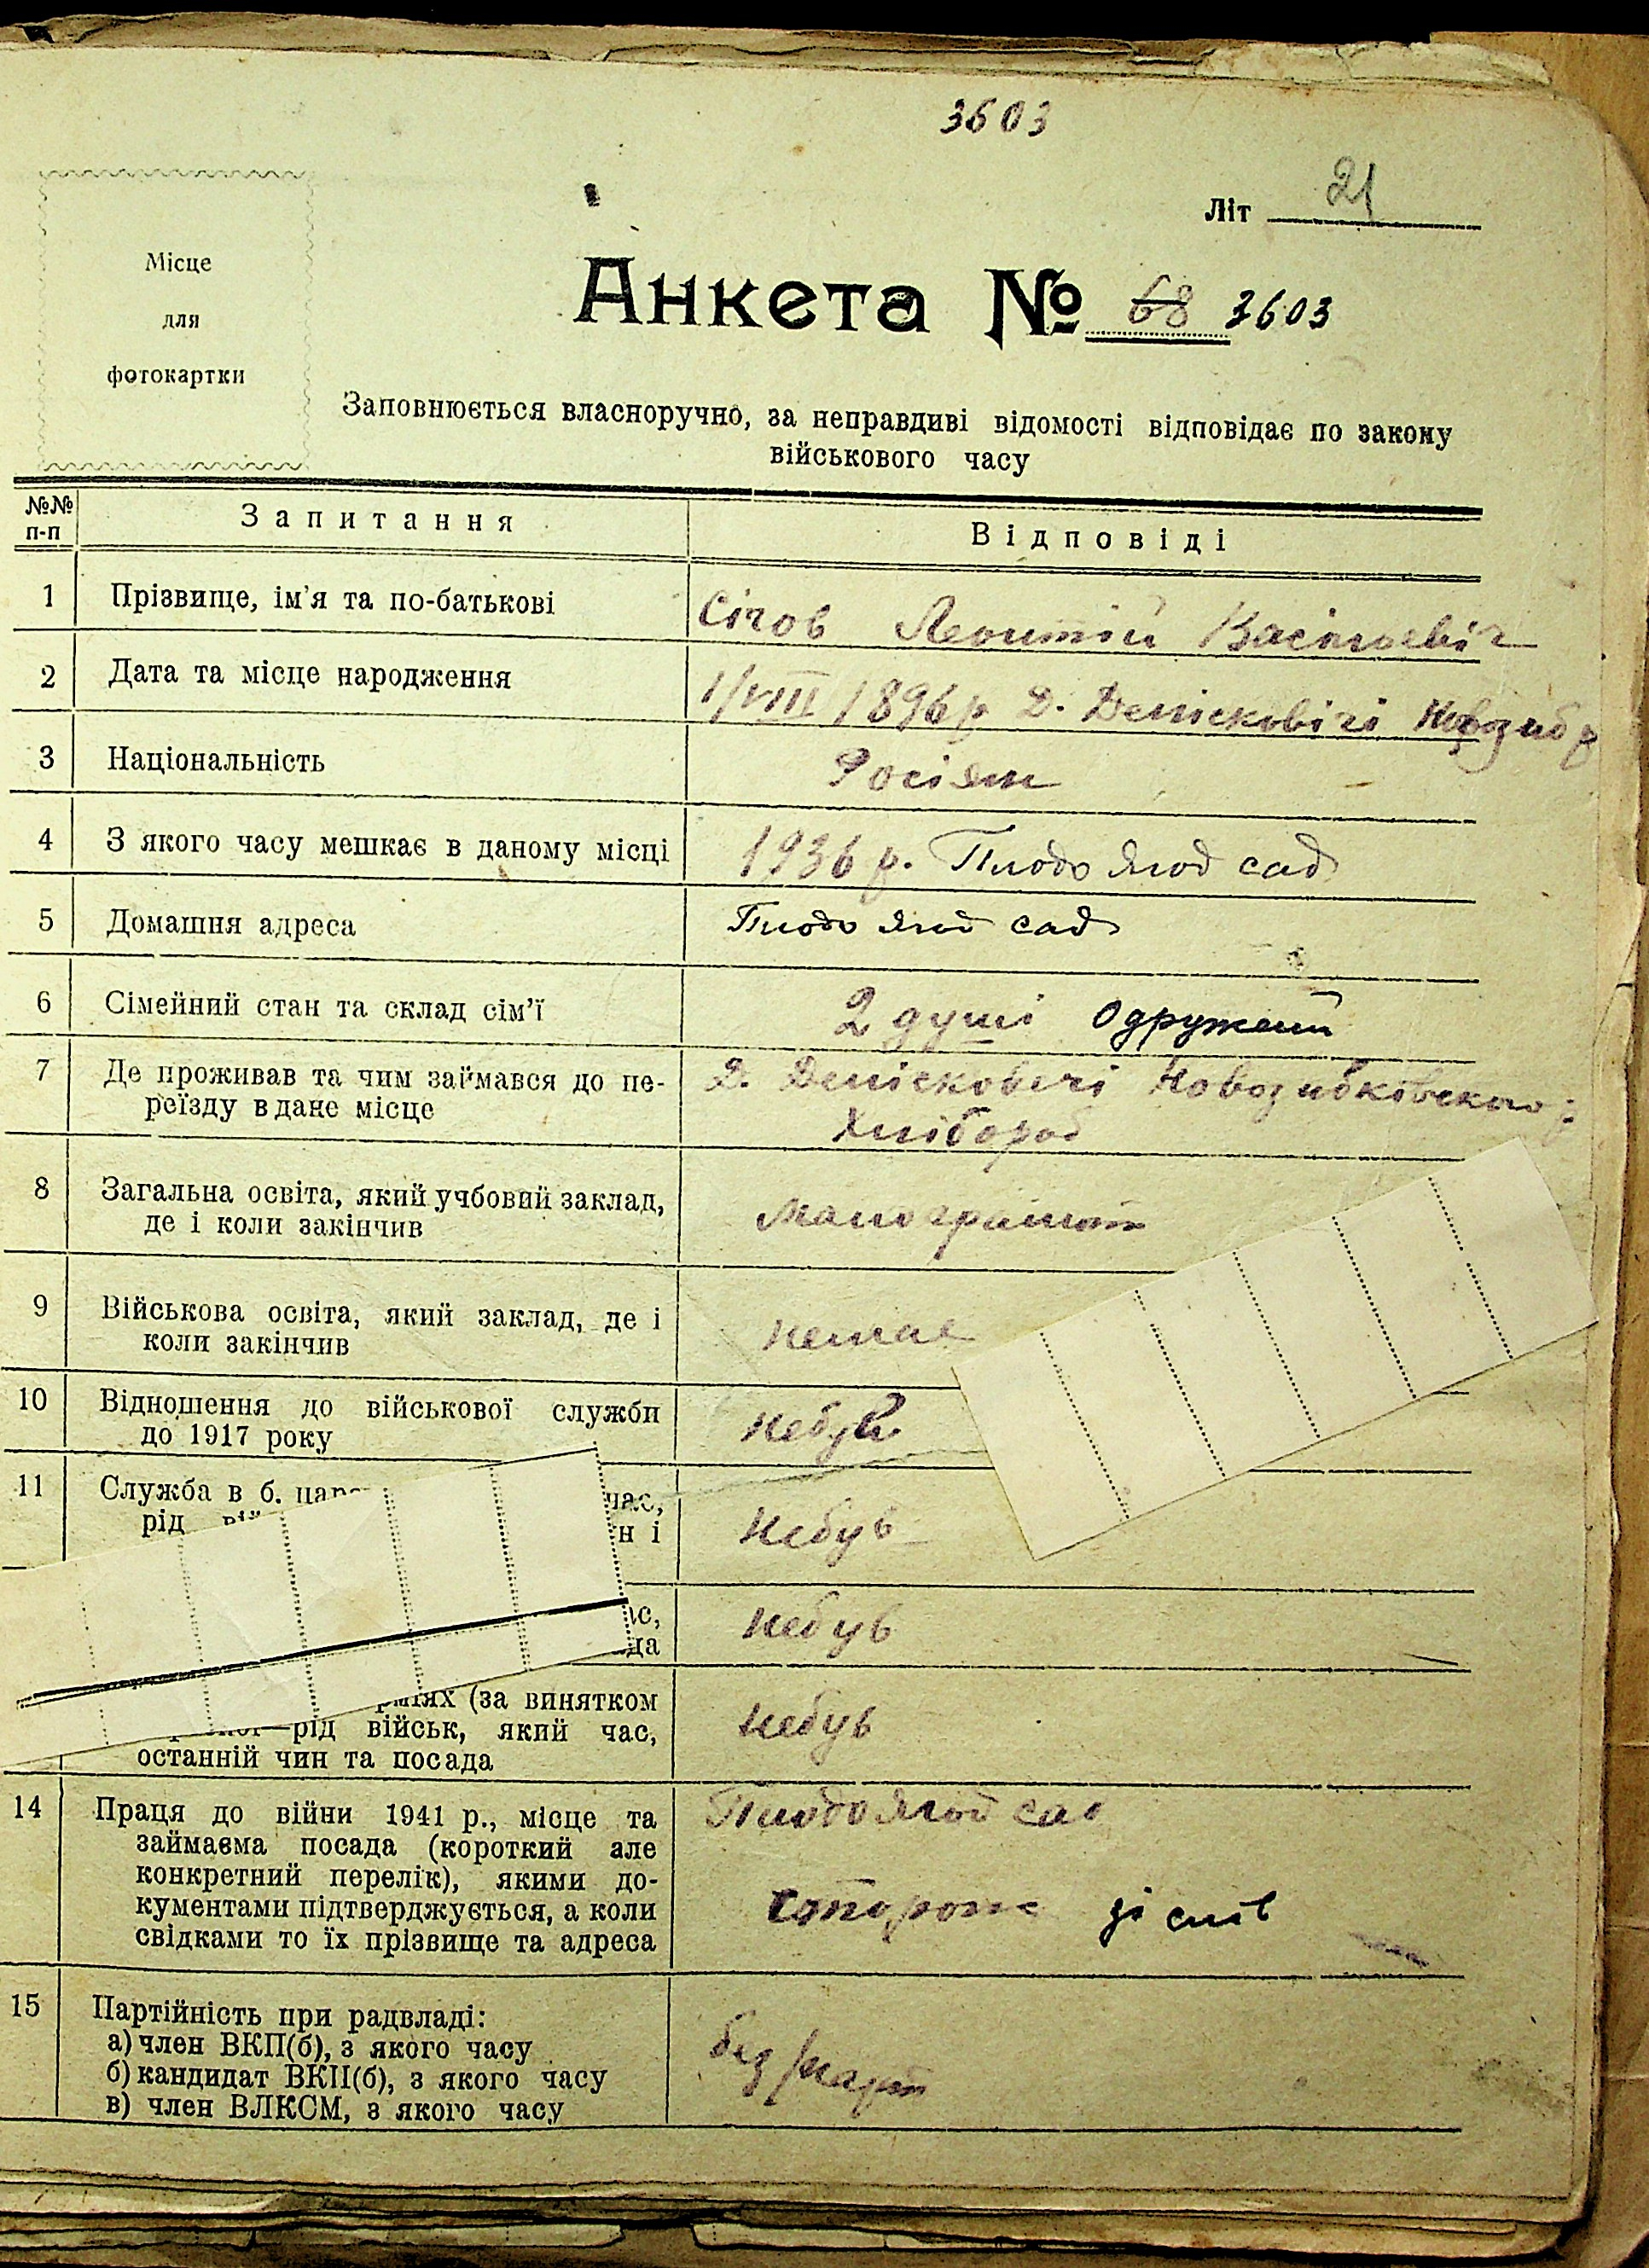 3603
Літ 21
Місце
для
фотокартки
Анкета № 68 3603
Заповнюється власноручно, за неправдиві відомості відповідає по закону
військового часу
№№
п-п
Запитання
Відповіді
1 Прізвище, ім'я та по-батькові Січов Леонтій Васільевіч
2 Дата та місце народження 1/VIII 1896 р Д. Денісковічі Новозиб р
3 Національність Росіян
4 З якого часу мешкає в даному місці 1936 р. Плодо Ягод сад
5 Домашня адреса Плодо Ягод сад
6 Сімейний стан та склад сім'ї 2 душі Одружений
7 Де проживав та чим займався до пе- Д. Денісковічі
реїзду в дане місце Хлібороб
8 Загальна освіта, який учбовий заклад,
де і коли закінчив Малограмот
9 Військова освіта, який заклад, де і
коли закінчив немае
10 Відношення до військової служби
до 1917 року небув
11 Служба в б. час,
рід н і небув
ас,
да небув
рміях (за винятком
рід військ, який час, небув
останній чин та посада
14 Праця до війни 1941 р., місце та Плодо Ягод сад
займаєма посада (короткий але
конкретний перелік), якими до-
кументами підтверджується, а коли сторож
свідками то їх прізвище та адреса
15 Партійність при радвладі:
а) член ВКП(б), з якого часу без парт
б) кандидат ВКП(б), з якого часу
в) член ВЛКСМ, з якого часу